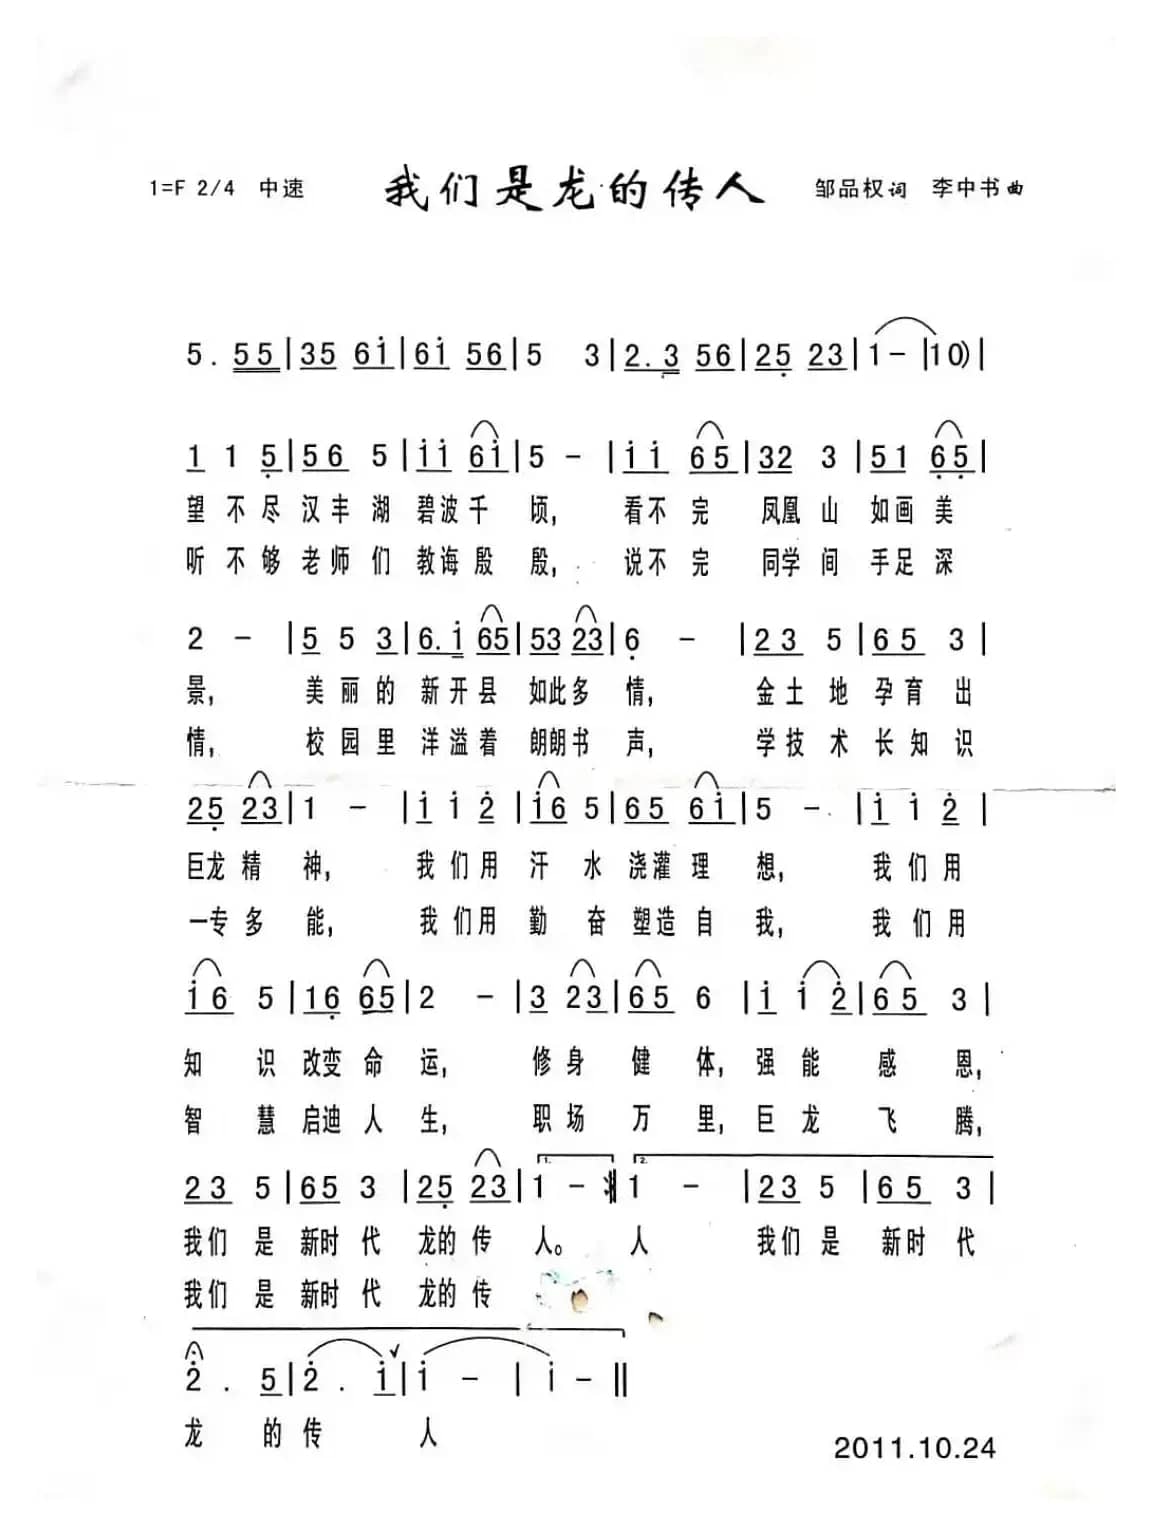 1=F 2/4 中速 我们是龙的传人 邹品权词 李中书曲
5. 55|35 6i|6i 56|5 3|2.3 56|25 23|1-|10)|
1 1 5|56 5|ii 6i|5 -|ii 65|32 3|51 65|
望不尽汉丰湖碧波千顷,看不完凤凰山如画美
听不够老师们教诲殷殷,说不完同学间手足深
2 -|5 5 3|6.i 65|53 23|6 -|23 5|65 3|
景,美丽的新开县如此多情,金土地孕育出
情,校园里洋溢着朗朗书声,学技术长知识
25 23|1 -|i i 2|i6 5|65 6i|5 -.|i i 2|
巨龙精神,我们用汗水浇灌理想,我们用
一专多能,我们用勤奋塑造自我,我们用
i6 5|16 65|2 -|3 23|65 6|i i2|65 3|
知识改变命运,修身健体,强能感恩,
智慧启迪人生,职场万里,巨龙飞腾,
1. 2.
23 5|65 3|25 23|1 -:|1 -|23 5|65 3|
我们是新时代龙的传人。人 我们是新时代
我们是新时代龙的传
2 . 5|2 . i|i -|i -||
龙的传人
2011.10.24